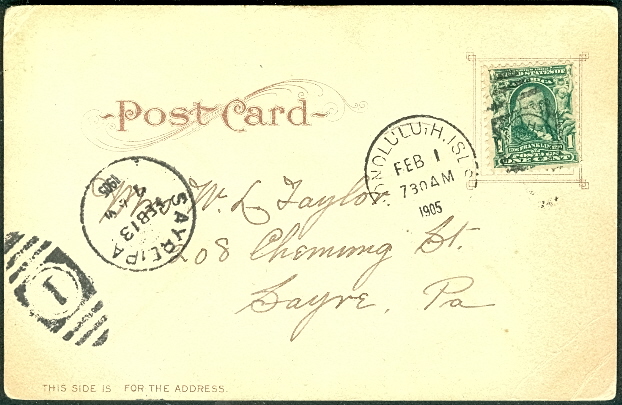 Post Card
HONOLULU, H. ISL'S
FEB 1
730 AM
1905
UNITED STATES OF
AMERICA
FRANKLIN
POSTAGE
1 ONE CENT 1
SAYRE, PA
FEB 13
1905
W. L. Taylor
208 Chemung St.
Sayre, Pa
1
THIS SIDE IS FOR THE ADDRESS.